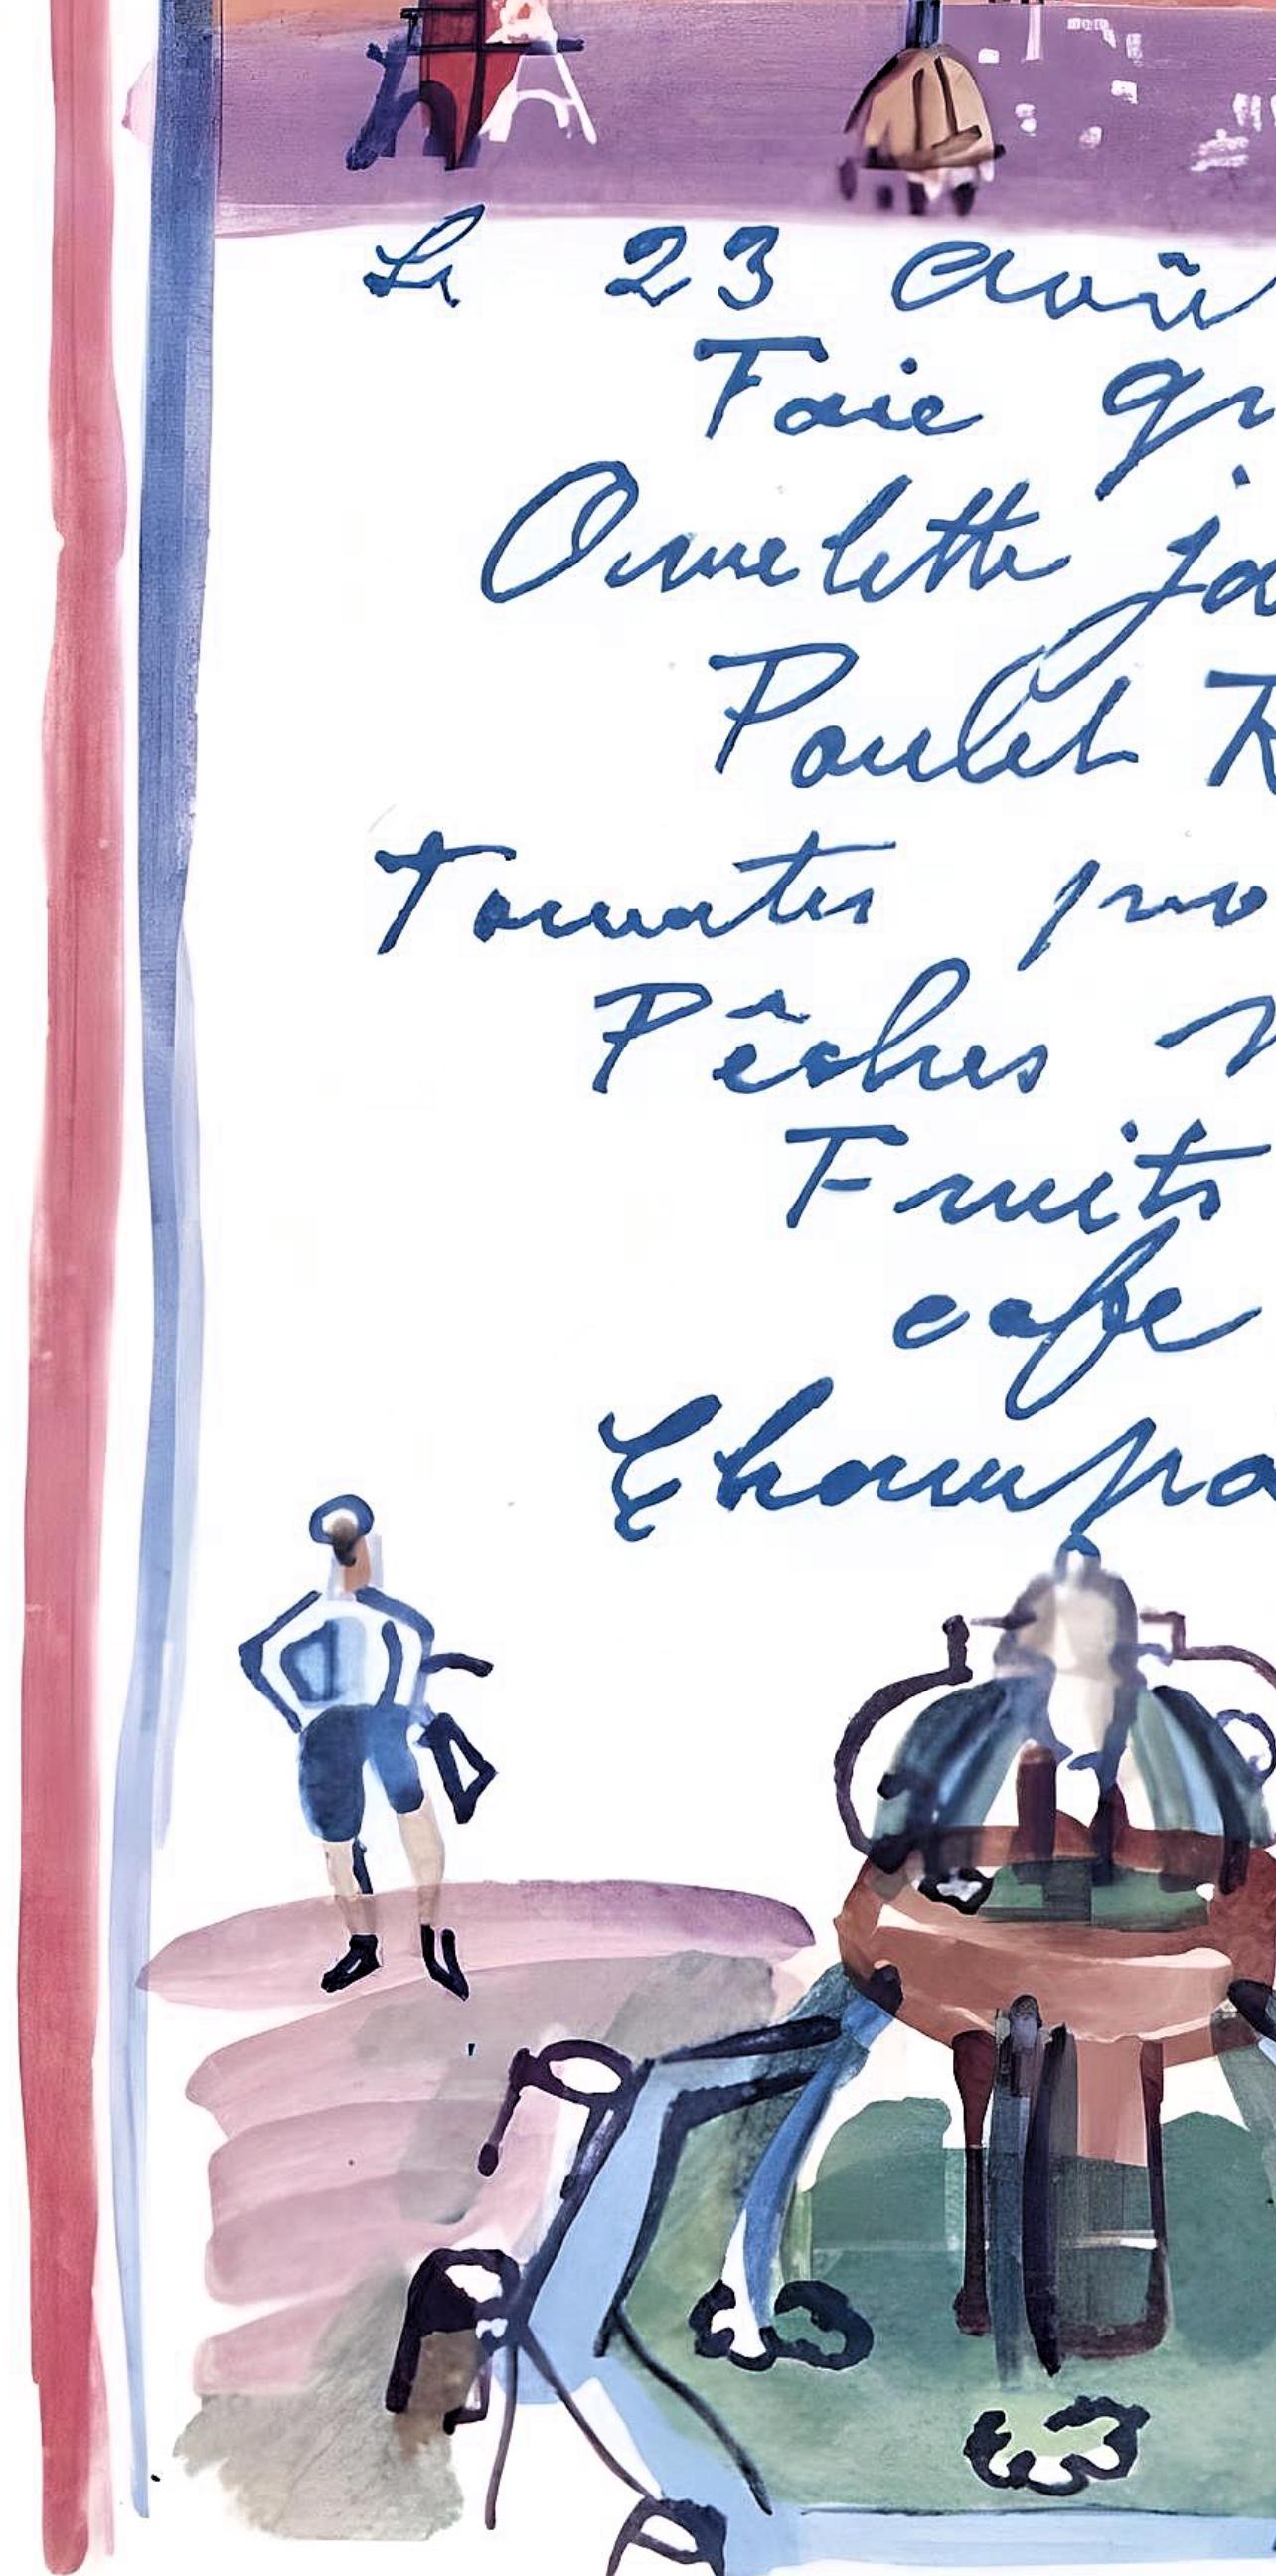 Le 23 Aoû
Foie gr
Omelette ja
Poulet R
Tomates pro
Pêches M
Fruits
cafe
Champa